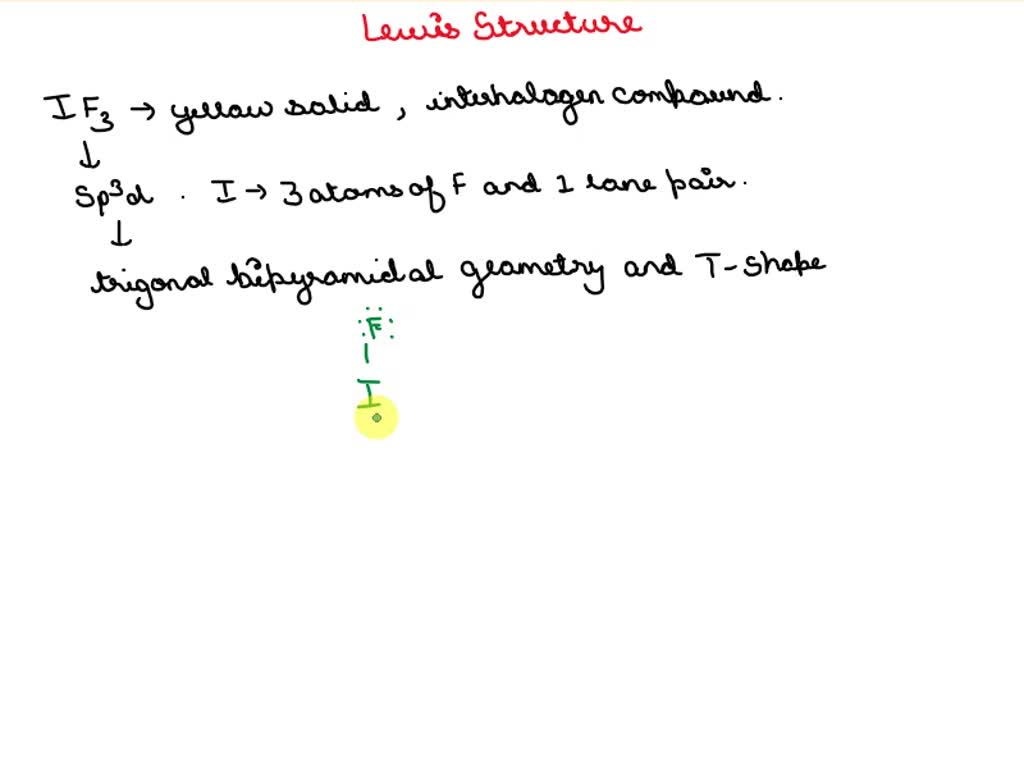 Lewis Structure
IF3 → yellow solid, interhalogen compound.
↓
Sp³d . I → 3 atoms of F and 1 lone pair.
↓
trigonal bipyramidal geometry and T-shape
:F:
|
I